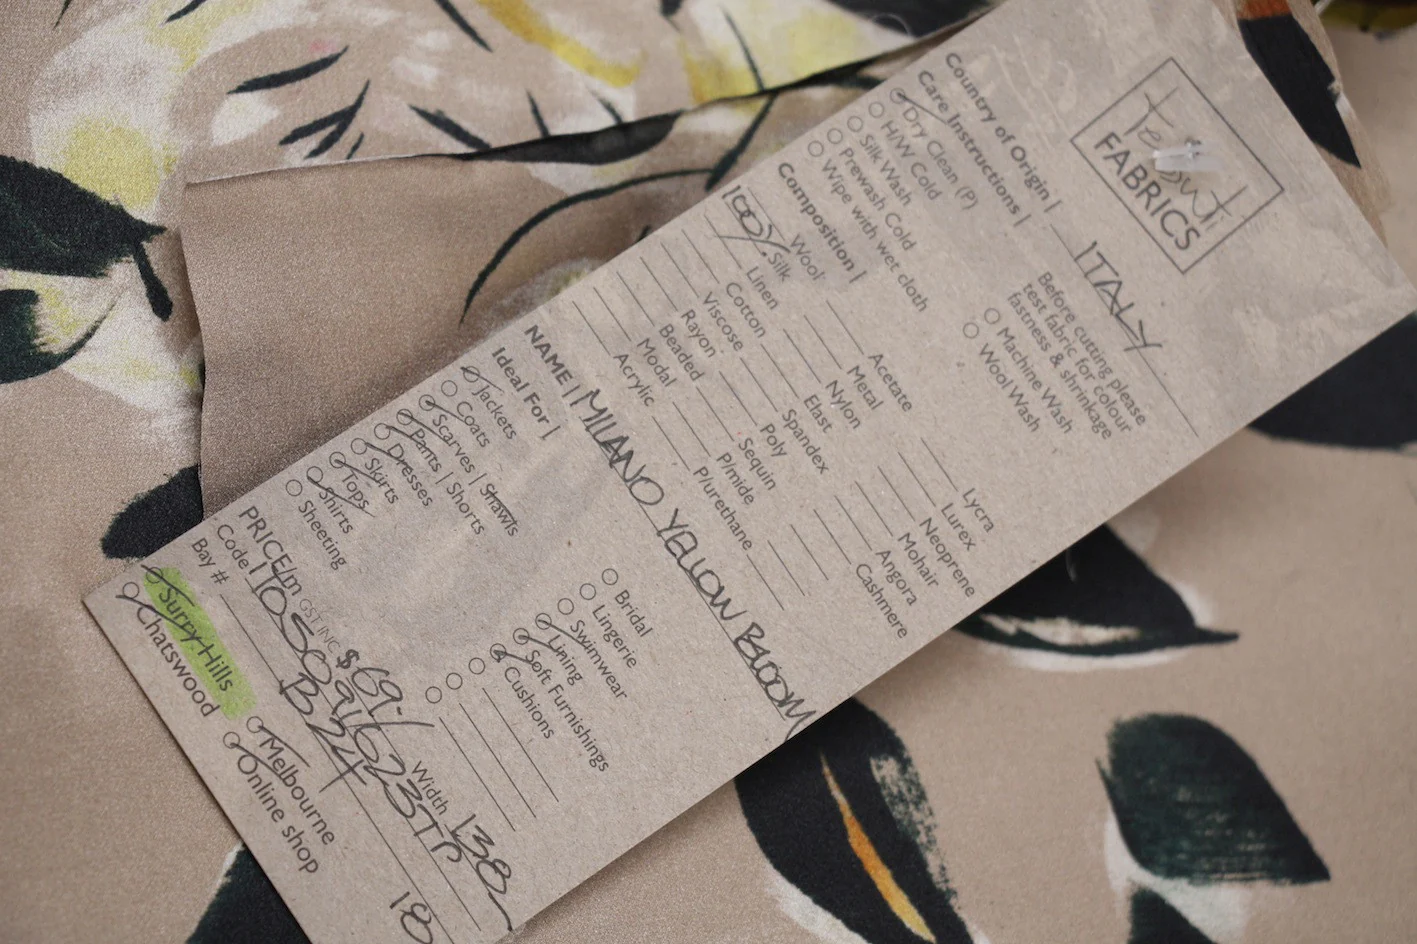 Tessuti
FABRICS
Country of Origin | ITALY
Care Instructions |
Dry Clean (P)
H/W Cold
Silk Wash
Prewash Cold
Wipe with wet cloth
Before cutting please
test fabric for colour
fastness & shrinkage
Machine Wash
Wool Wash
Composition |
Wool
100% Silk
Linen
Cotton
Viscose
Rayon
Beaded
Modal
Acrylic
Acetate
Metal
Nylon
Elast
Spandex
Poly
Sequin
P/mide
P/urethane
Lycra
Lurex
Neoprene
Mohair
Angora
Cashmere
NAME | MILANO YELLOW BLOOM
Ideal For |
Jackets
Coats
Scarves | Shawls
Pants | Shorts
Dresses
Skirts
Tops
Shirts
Sheeting
Bridal
Lingerie
Swimwear
Lining
Soft Furnishings
Cushions
PRICE/m GST INC $69.- Width 138
Code
Bay # B24
18
Surry Hills
Chatswood
Melbourne
Online shop